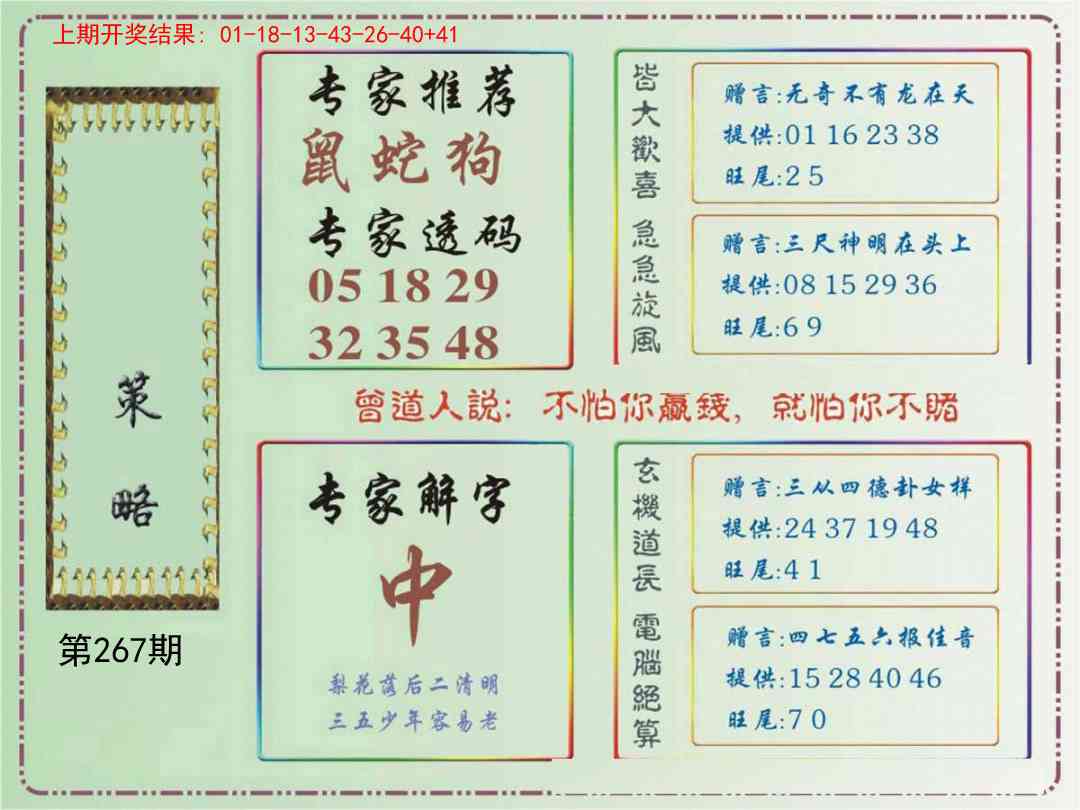 上期开奖结果: 01-18-13-43-26-40+41
策略
第267期
专家推荐
鼠蛇狗
专家透码
05 18 29
32 35 48
皆大歡喜
赠言:无奇不有龙在天
提供:01 16 23 38
旺尾:2 5
急急旋風
赠言:三尺神明在头上
提供:08 15 29 36
旺尾:6 9
曾道人説: 不怕你贏錢, 就怕你不賭
专家解字
中
梨花落后二清明
三五少年容易老
玄機道長
赠言:三从四德卦女样
提供:24 37 19 48
旺尾:4 1
電腦絕算
赠言:四七五六报佳音
提供:15 28 40 46
旺尾:7 0